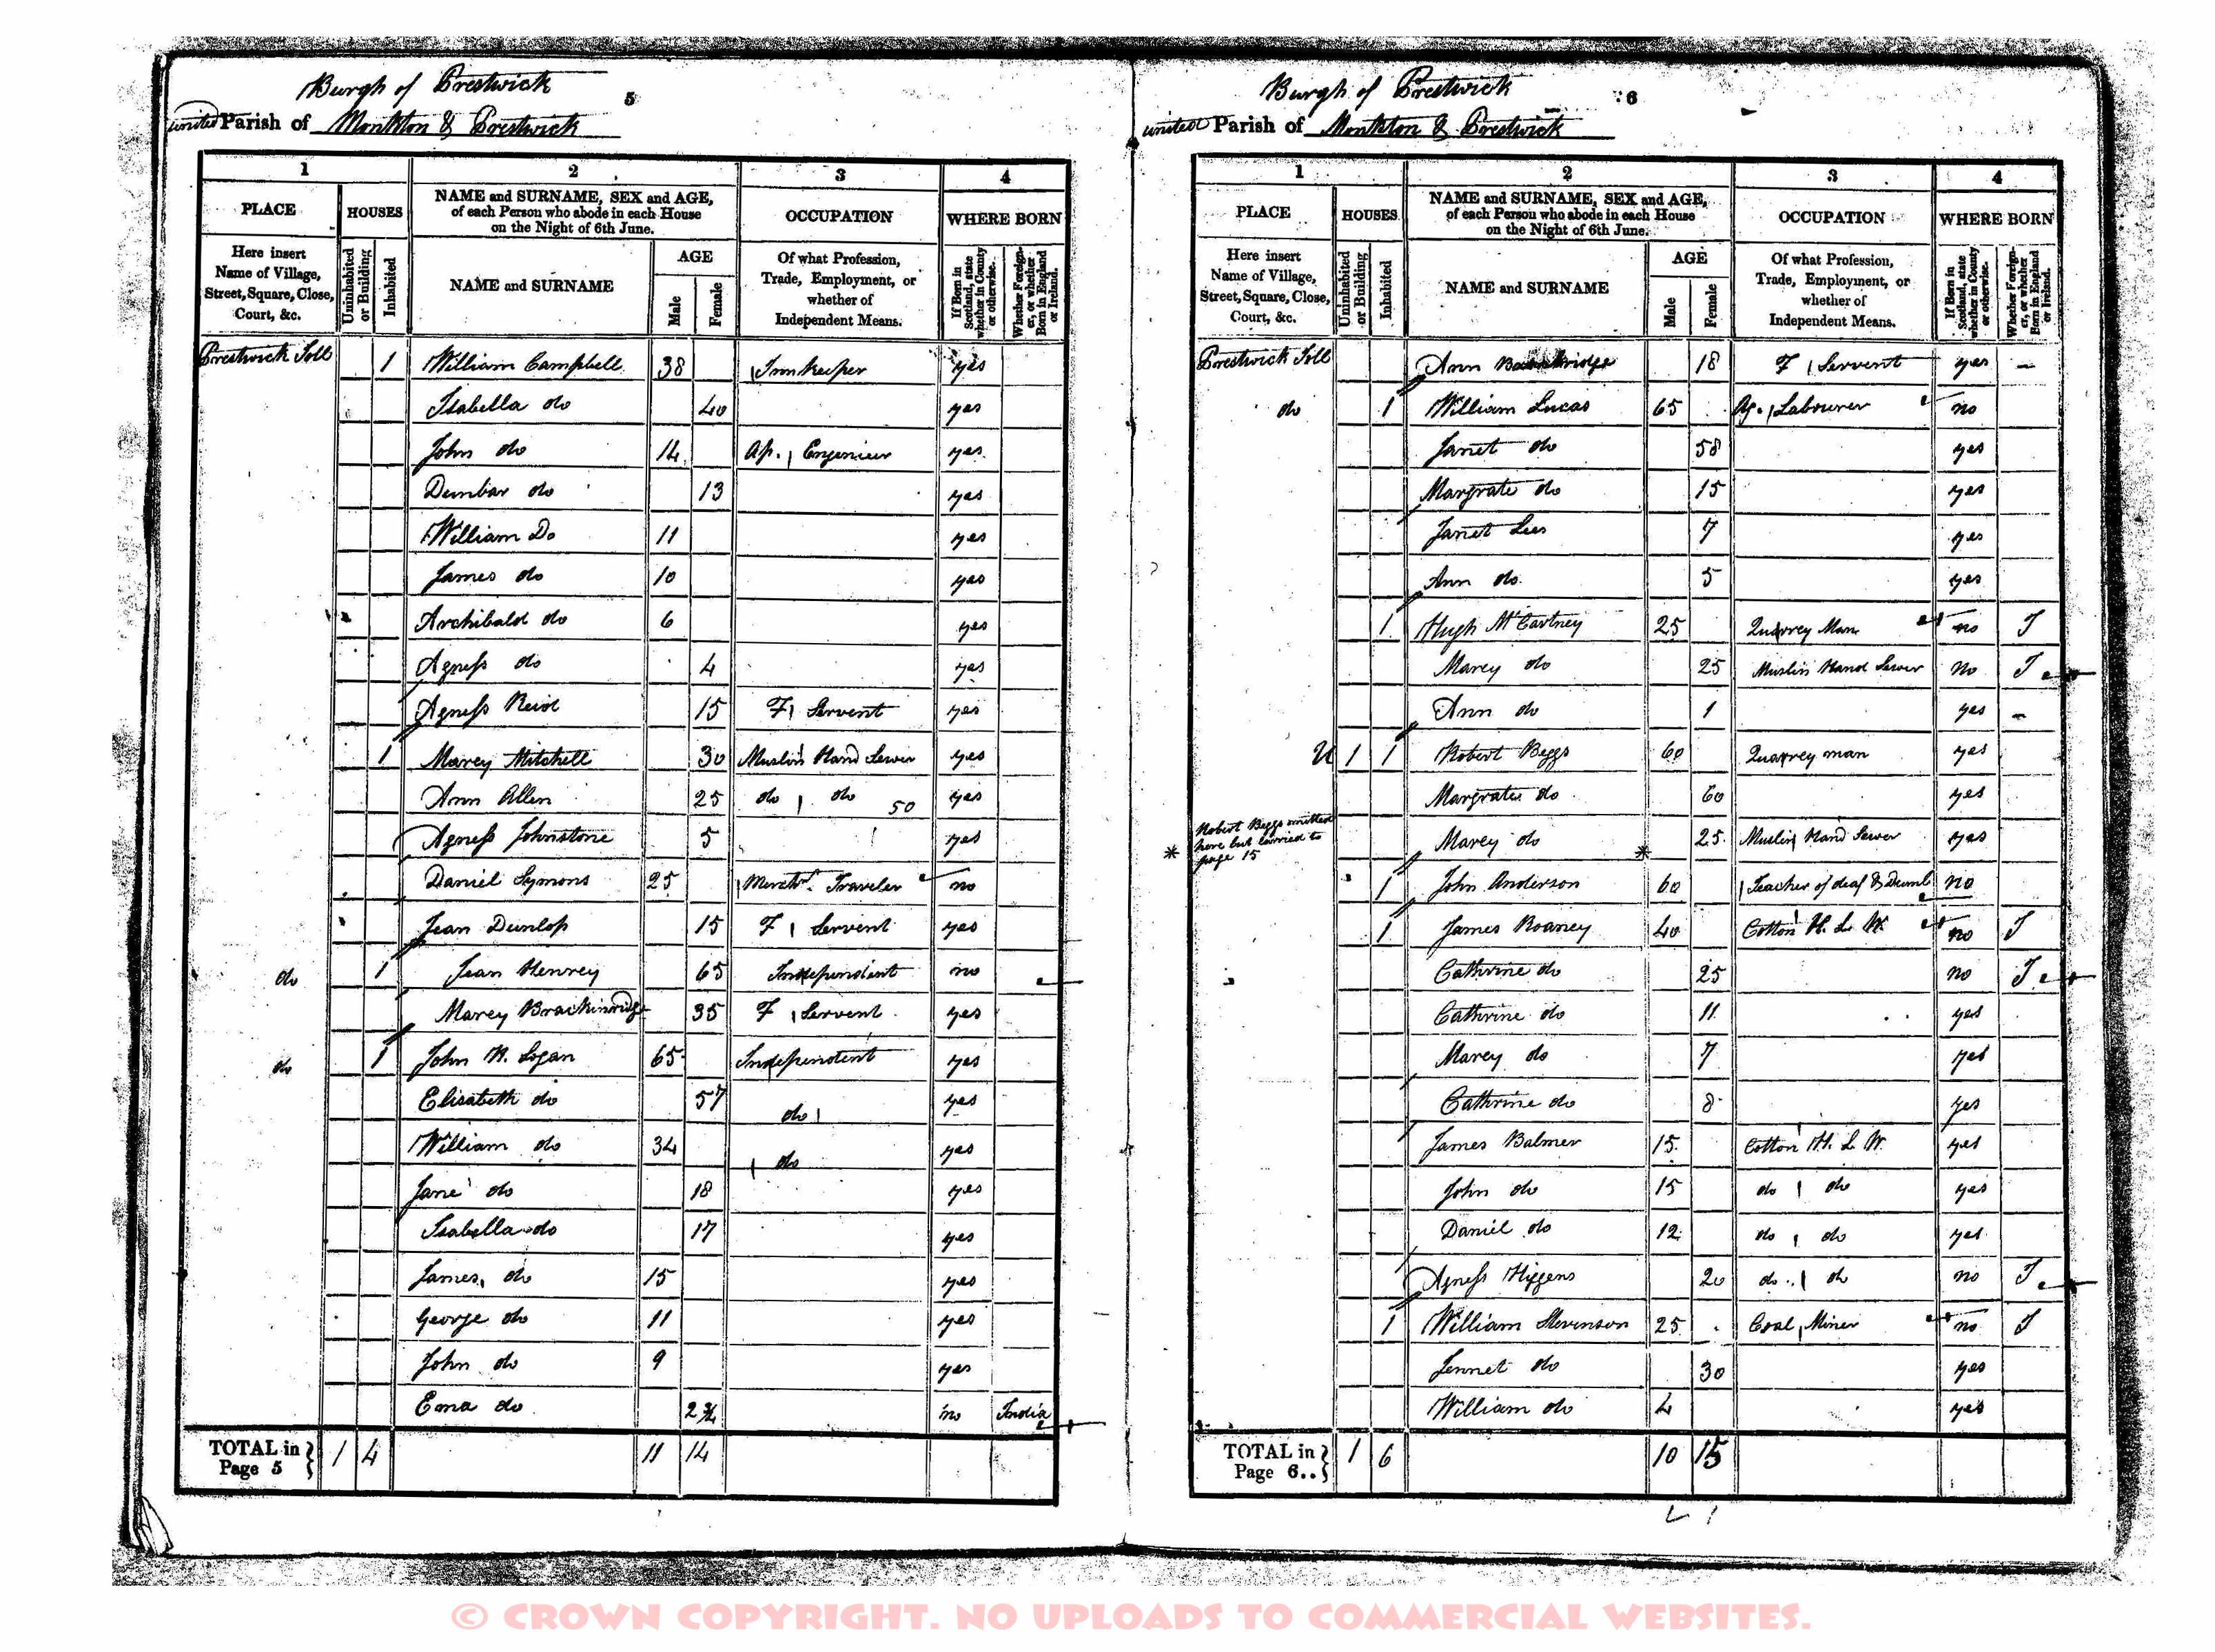 Burgh of Prestwick
5
united Parish of Monkton & Prestwick
1 2 3 4
PLACE HOUSES NAME and SURNAME, SEX and AGE, of each Person who abode in each House on the Night of 6th June. OCCUPATION WHERE BORN
Here insert Name of Village, Street, Square, Close, Court, &c. Uninhabited or Building Inhabited NAME and SURNAME AGE Male Female Of what Profession, Trade, Employment, or whether of Independent Means. If Born in Scotland, state whether in County or otherwise. Whether Foreigner, or whether Born in England or Ireland.
Prestwick Toll 1 William Campbell 38 Innkeeper yes
Isabella do 40 yes
John do 14 Ap. Engenieur yes
Dunbar do 13 yes
William Do 11 yes
James do 10 yes
Archibald do 6 yes
Agness do 4 yes
Agness Reid 15 F Servent yes
1 Marey Mitchell 30 Muslin Hand Sewer yes
Ann Allen 25 do do 50 yes
Agness Johnstone 5 yes
Daniel Symons 25 Traveler no
Jean Dunlop 15 F Servent yes
do 1 Jean Henrey 65 Independent no
Marey Brackinridge 35 F Servent yes
do 1 John H. Logan 65 Independent yes
Elisabeth do 57 do yes
William do 34 do yes
Jane do 18 yes
Isabella do 17 yes
James do 15 yes
George do 11 yes
John do 9 yes
Ema do 2 3/4 no India
TOTAL in Page 5 } 1 4 11 14
Burgh of Prestwick
6
united Parish of Monkton & Prestwick
1 2 3 4
PLACE HOUSES NAME and SURNAME, SEX and AGE, of each Person who abode in each House on the Night of 6th June. OCCUPATION WHERE BORN
Here insert Name of Village, Street, Square, Close, Court, &c. Uninhabited or Building Inhabited NAME and SURNAME AGE Male Female Of what Profession, Trade, Employment, or whether of Independent Means. If Born in Scotland, state whether in County or otherwise. Whether Foreigner, or whether Born in England or Ireland.
Prestwick Toll Ann 18 F Servent yes
do 1 William Lucas 65 Ag. Labourer no
Janet do 58 yes
Margrate do 15 yes
Janet Lees 7 yes
Ann do 5 yes
1 Hugh McCartney 25 Quarrey Man no I
Marey do 25 Muslin Hand Sewer no I
Ann do 1 yes
U 1 1 Robert Beggs 60 Quarrey man yes
Margrate do 60 yes
* Robert Beggs omitted here but carried to page 15 Marey do * 25 Muslin Hand Sewer yes
1 John Anderson 60 Teacher of deaf & Dumb no
1 James Roaney 40 Cotton H. L. W. no I
Cathrine do 25 no I
Cathrine do 11 yes
Marey do 7 yes
Cathrine do 8 yes
James Balmer 15 Cotton H. L. W. yes
John do 15 do do yes
Daniel do 12 do do yes
Agness Higgens 20 do do no I
1 William Stevenson 25 Coal Miner no I
Jennet do 30 yes
William do 4 yes
TOTAL in Page 6.. } 1 6 10 15
© CROWN COPYRIGHT. NO UPLOADS TO COMMERCIAL WEBSITES.